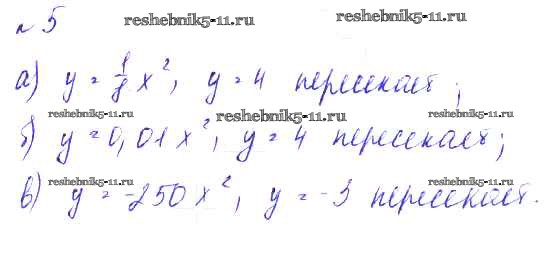 № 5
reshebnik5-11.ru reshebnik5-11.ru
а) y = 1/8 x², y = 4 пересекает;
reshebnik5-11.ru reshebnik5-11.ru reshebnik5-11.ru
б) y = 0,01x², y = 4 пересекает;
reshebnik5-11.ru reshebnik5-11.ru reshebnik5-11.ru
в) y = -250x², y = -3 пересекает.